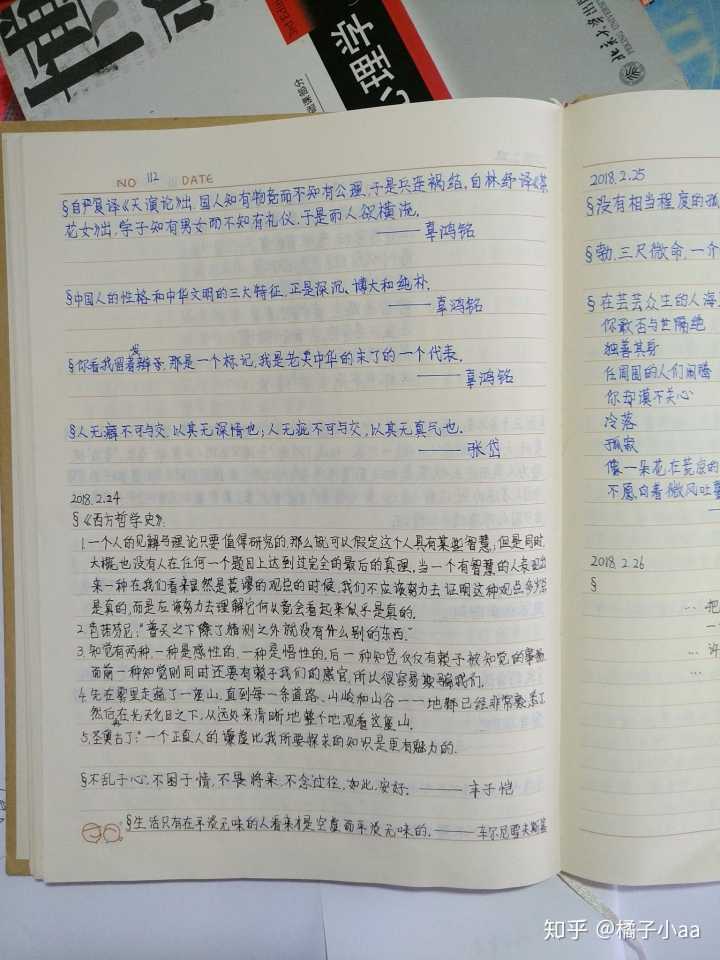 心理学
北京大学出版
PEKING UNIVERSITY
NO 112 DATE
§自严复译《天演论》出,国人知有物竞而不知有公理,于是兵连祸结,自林纾译《茶
花女》出,学子知有男女而不知有礼仪,于是而人欲横流。
——辜鸿铭
§中国人的性格和中华文明的三大特征,正是深沉、博大和纯朴。
——辜鸿铭
§你看我留着发辫子,那是一个标记,我是老大中华的末了的一个代表。
——辜鸿铭
§人无癖不可与交,以其无深情也;人无疵不可与交,以其无真气也。
——张岱
2018.2.24
§《西方哲学史》:
1.一个人的见解与理论只要值得研究的,那么就可以假定这个人具有某些智慧,但是同时,
大概也没有人在任何一个题目上达到过完全的最后的真理,当一个有智慧的人表现出
来一种在我们看来显然是荒谬的观点的时候,我们不应该努力去证明这种观点多少
是真的,而是应该努力去理解它何以竟会看起来似乎是真的。
2.色诺芬尼:“普天之下除了猜测之外就没有什么别的东西。”
3.知觉有两种,一种是感性的,一种是悟性的,后一种知觉仅仅有赖于被知觉的事物,
而前一种知觉则同时还要有赖于我们的感官,所以很容易欺骗我们。
4.先在雾里走遍了一座山,直到每一条道路、山岭和山谷——地都已经非常熟悉了,
然后在光天化日之下,从远处来清晰地整个地观看这座山。
5.圣奥古丁:“一个正直人的谦虚比我所要探求的知识是更有魅力的.
§不乱于心,不困于情,不畏将来,不念过往,如此,安好。——丰子恺
§生活只有在平淡无味的人看来才是空虚而平淡无味的。——车尔尼雪夫斯基
2018.2.25
§没有相当程度的孤
§勃,三尺微命,一介
§在芸芸众生的人海
你敢否与世隔绝
独善其身
任周围的人们闹腾
你却漠不关心
冷落
孤寂
像一朵花在荒凉的
不愿向着微风吐
2018.2.26
§
…把
一
…许
…
知乎 @橘子小aa